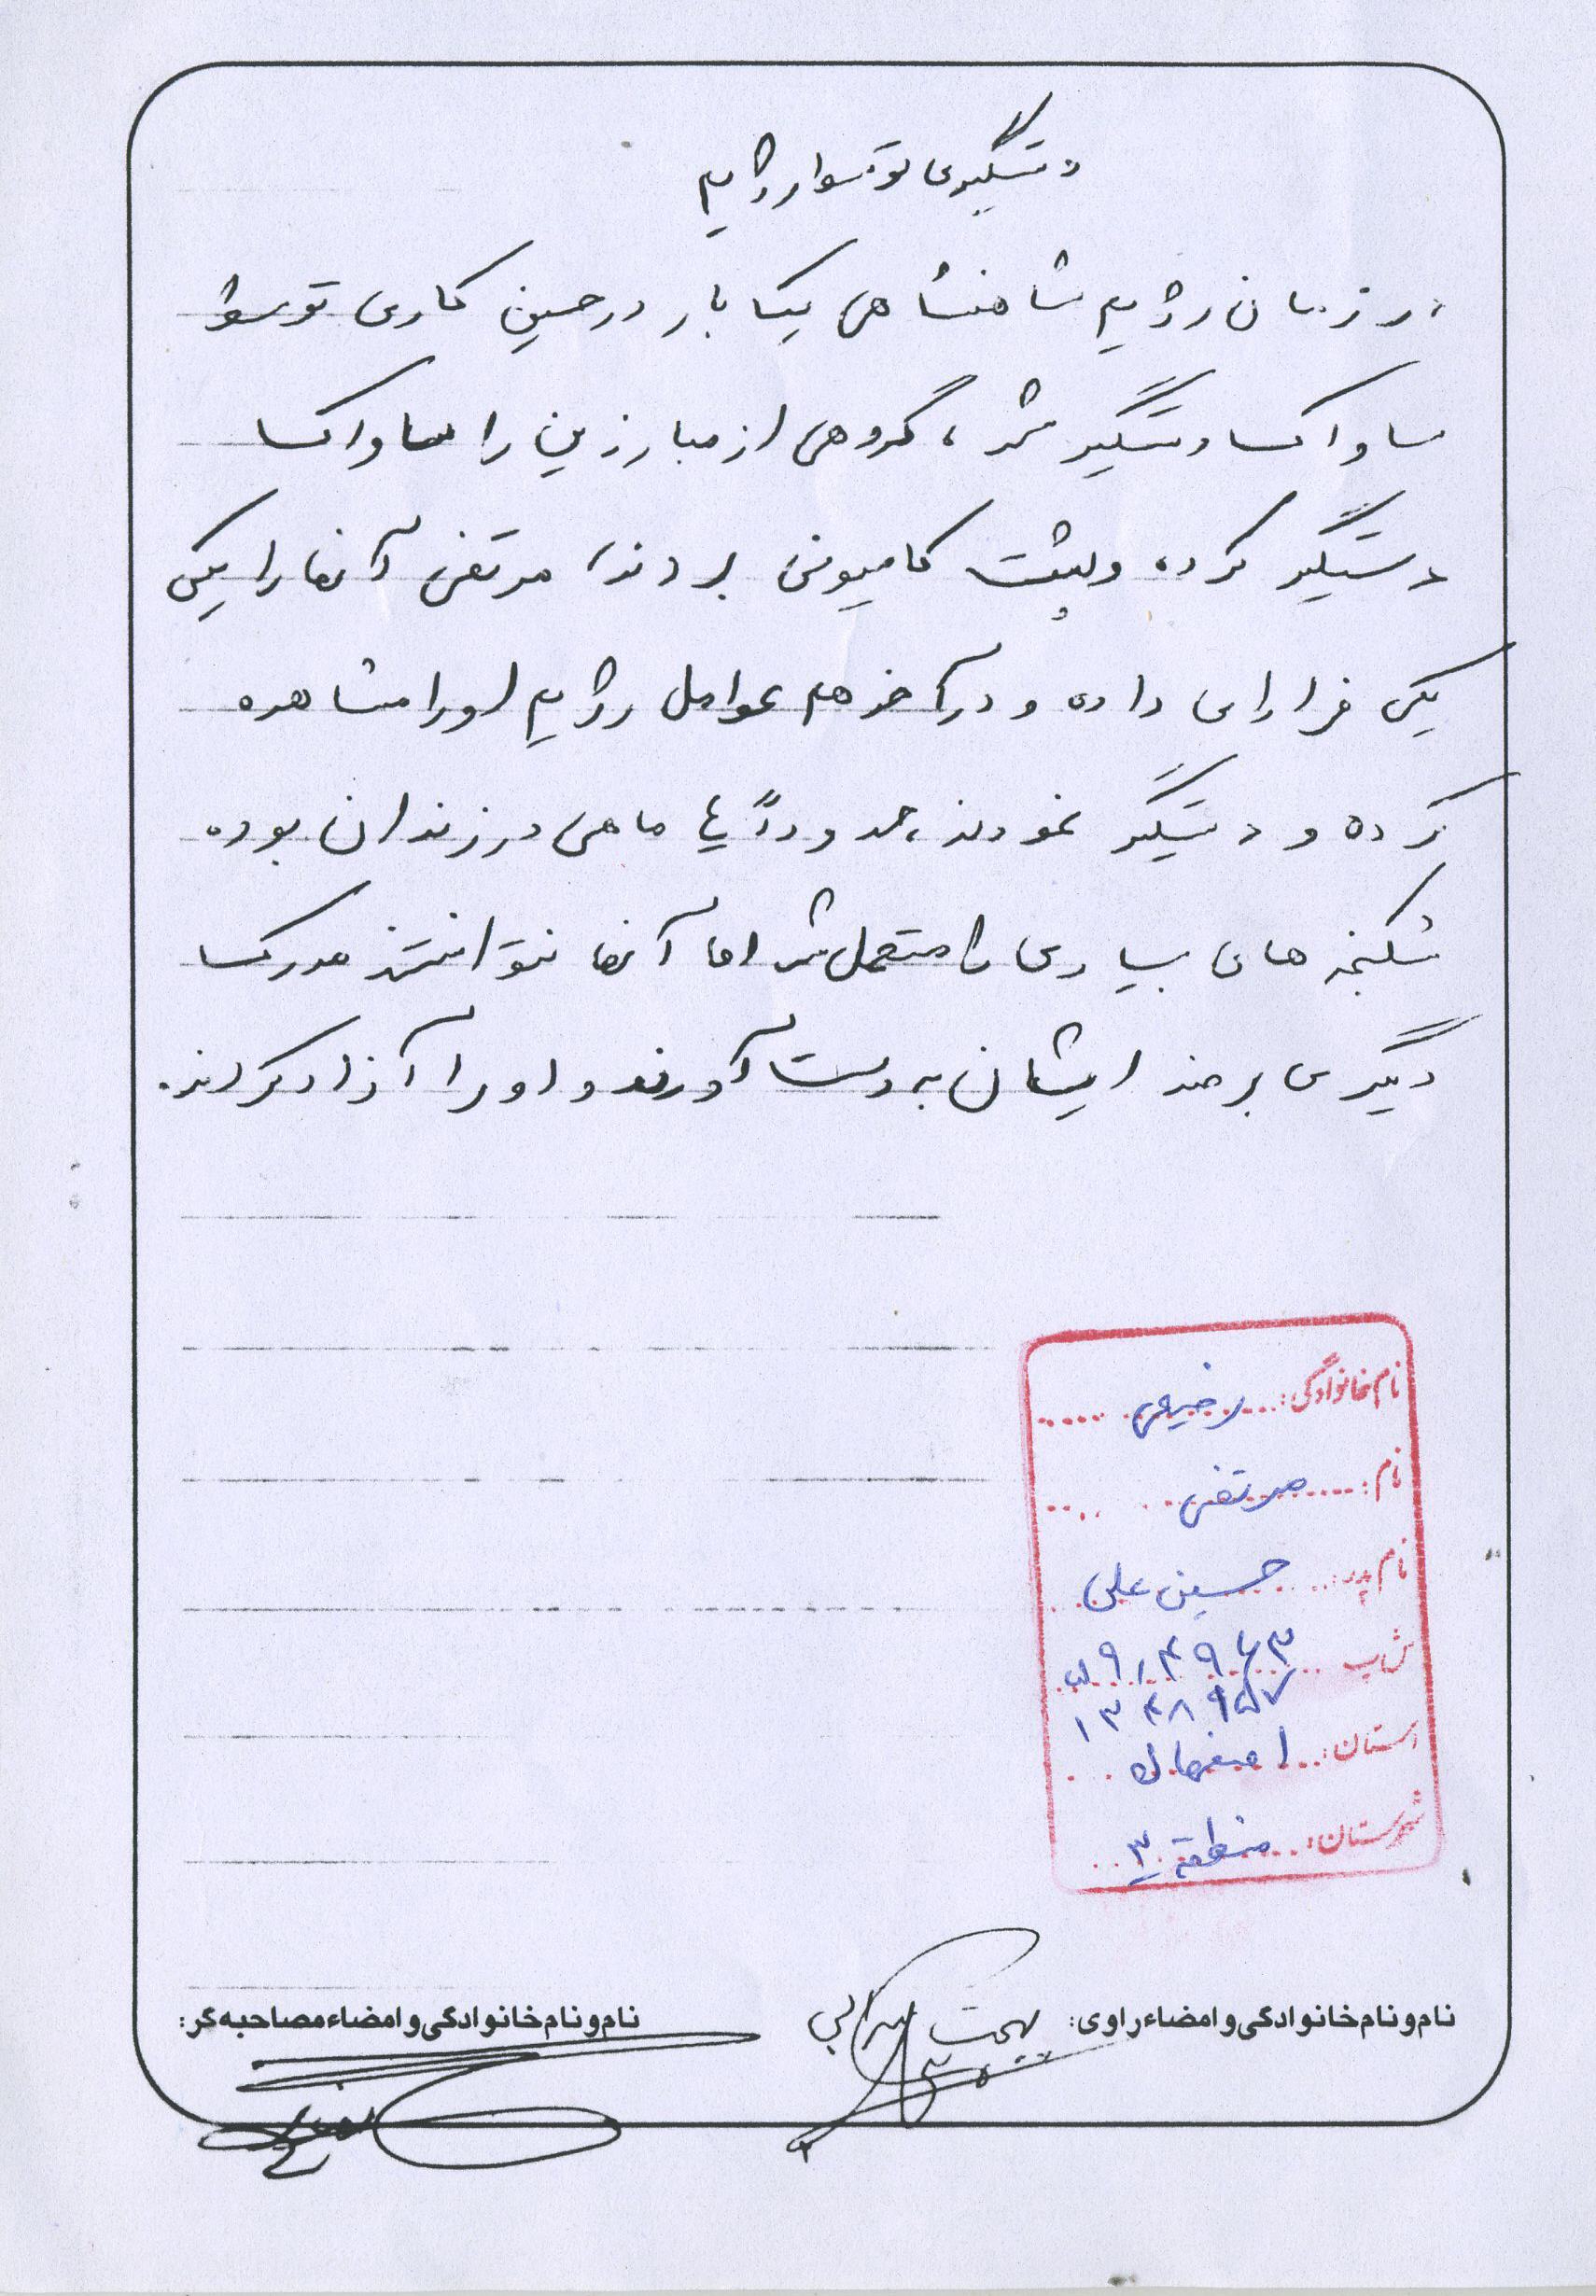 دستگیری توسط رژیم
در زمان رژیم شاهنشاهی یک بار در حین کاری توسط
ساواک دستگیر شد، گروهی از مبارزین را ساواک
دستگیر کرده و پشت کامیونی بردند، مرتضی آنها را یکی
یکی فراری داده و در آخر هم عوامل رژیم او را مشاهده
کرده و دستگیر نمودند، حدوداً ماهی در زندان بوده
شکنجه های بسیاری را متحمل شد اما آنها نتوانستند مدرک
دیگری بر ضد ایشان به دست آورند و او را آزاد کردند.
نام خانوادگی: رفیعی
نام: مرتضی
نام پدر: حسین علی
ش پ
استان: اصفهان
شهرستان: منطقه ۳
نام و نام خانوادگی و امضاء راوی: بهجت
نام و نام خانوادگی و امضاء مصاحبه گر: